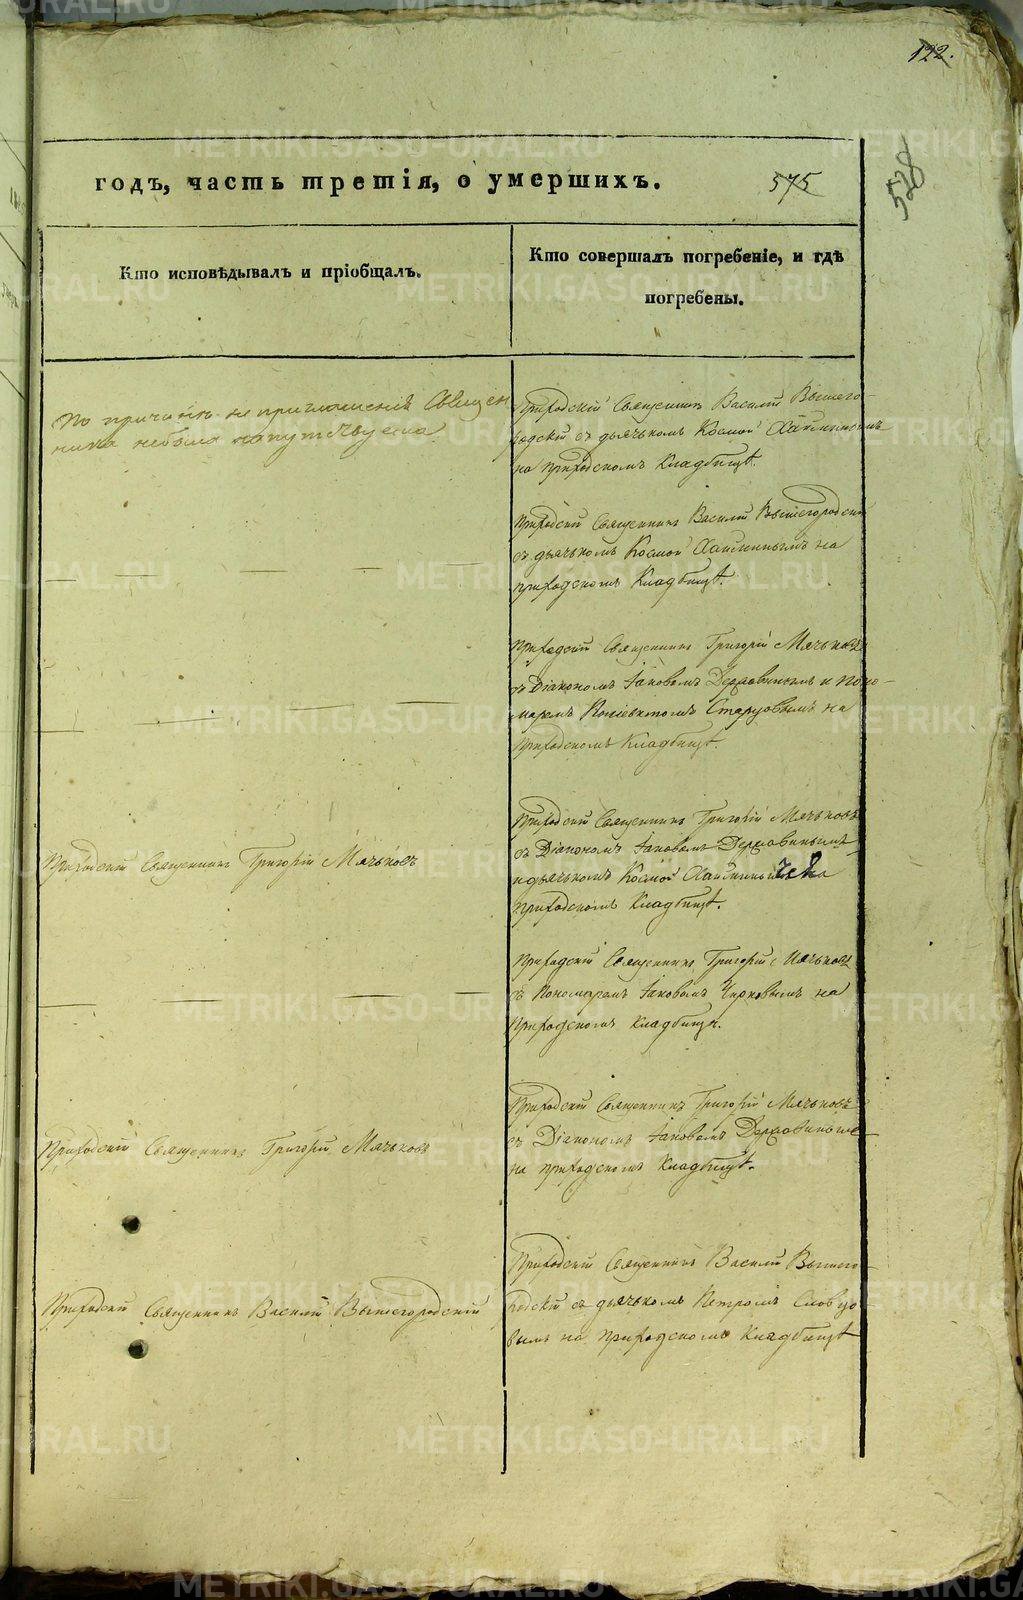 122.
528
годъ, часть третія, о умершихъ.
575
Кто исповѣдывалъ и пріобщалъ.
Кто совершалъ погребеніе, и гдѣ
погребены.
По причинѣ не приглашенія Священ
ника небыла напутствуема
Приходскій Священникъ Василій Вышего-
родскій съ дьячькомъ Космой
на приходскомъ Кладбищѣ.
Приходскій Священникъ Василій Вышегородскій
съ дьячькомъ Космой на
приходскомъ Кладбищѣ.
Приходскій Священникъ Григорій Мячьковъ
съ Діакономъ Іаковомъ Державинымъ и Поно-
маремъ Старцовымъ на
Приходскомъ Кладбищѣ.
Приходскій Священникъ Григорій Мячьковъ
Приходскій Священникъ Григорій Мячьковъ
съ Діакономъ Іаковомъ Державинымъ
и дьячькомъ Космой на
приходскомъ Кладбищѣ.
Приходскій Священникъ Григорій Мячьковъ
съ Пономаремъ Іаковомъ на
Приходскомъ Кладбищѣ.
Приходскій Священникъ Григорій Мячьковъ
Приходскій Священникъ Григорій Мячьковъ
съ Діакономъ Іаковомъ Державинымъ
на приходскомъ Кладбищѣ.
Приходскій Священникъ Василій Вышегородскій
Приходскій Священникъ Василій Вышего-
родскій съ дьячькомъ Петромъ Словцо-
вымъ на приходскомъ Кладбищѣ
METRIKI.GASO-URAL.RU